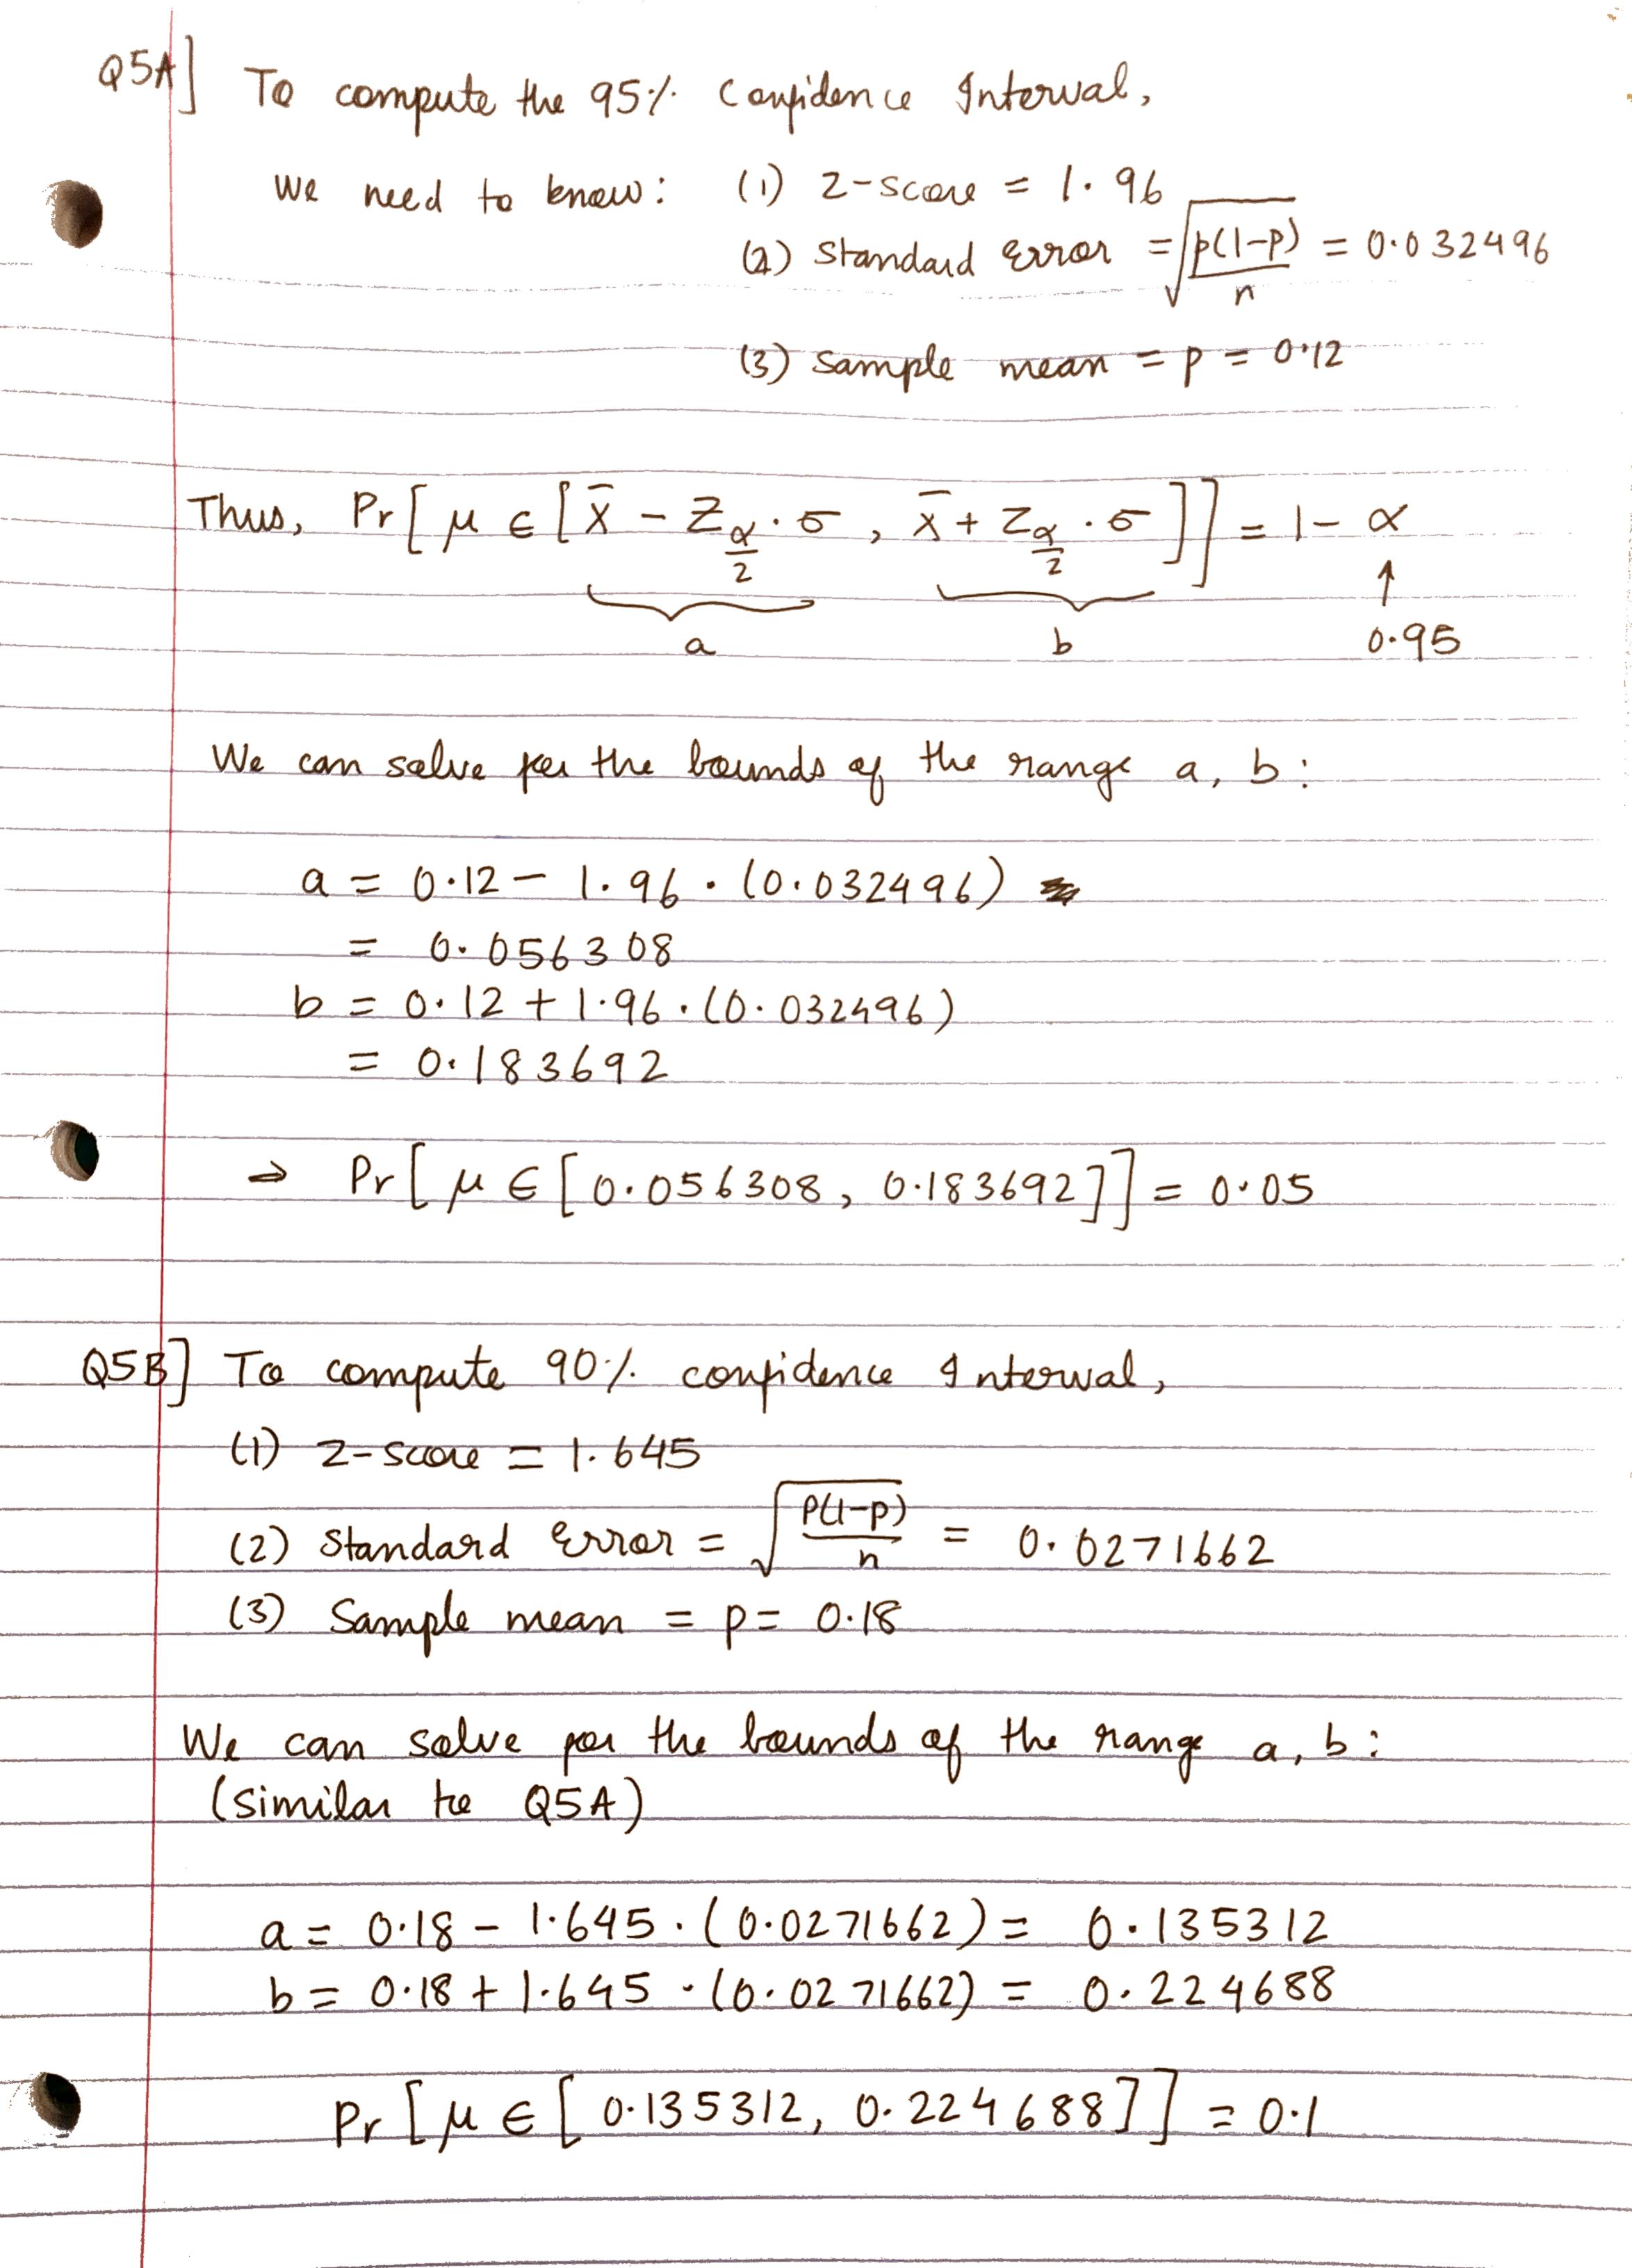 Q5A] To compute the 95% Confidence Interval,
We need to know: (1) z-score = 1.96
(2) Standard Error = √(p(1-p)/n) = 0.032496
(3) Sample mean = p = 0.12
Thus, Pr[μ ∈ [x̄ - Z_(α/2) · σ, x̄ + Z_(α/2) · σ]] = 1 - α
a b ↑
0.95
We can solve for the bounds of the range a, b:
a = 0.12 - 1.96 · (0.032496)
= 0.056308
b = 0.12 + 1.96 · (0.032496)
= 0.183692
⇒ Pr[μ ∈ [0.056308, 0.183692]] = 0.05
Q5B] To compute 90% confidence Interval,
(1) z-score = 1.645
(2) Standard Error = √(p(1-p)/n) = 0.0271662
(3) Sample mean = p = 0.18
We can solve for the bounds of the range a, b:
(Similar to Q5A)
a = 0.18 - 1.645 · (0.0271662) = 0.135312
b = 0.18 + 1.645 · (0.0271662) = 0.224688
Pr[μ ∈ [0.135312, 0.224688]] = 0.1